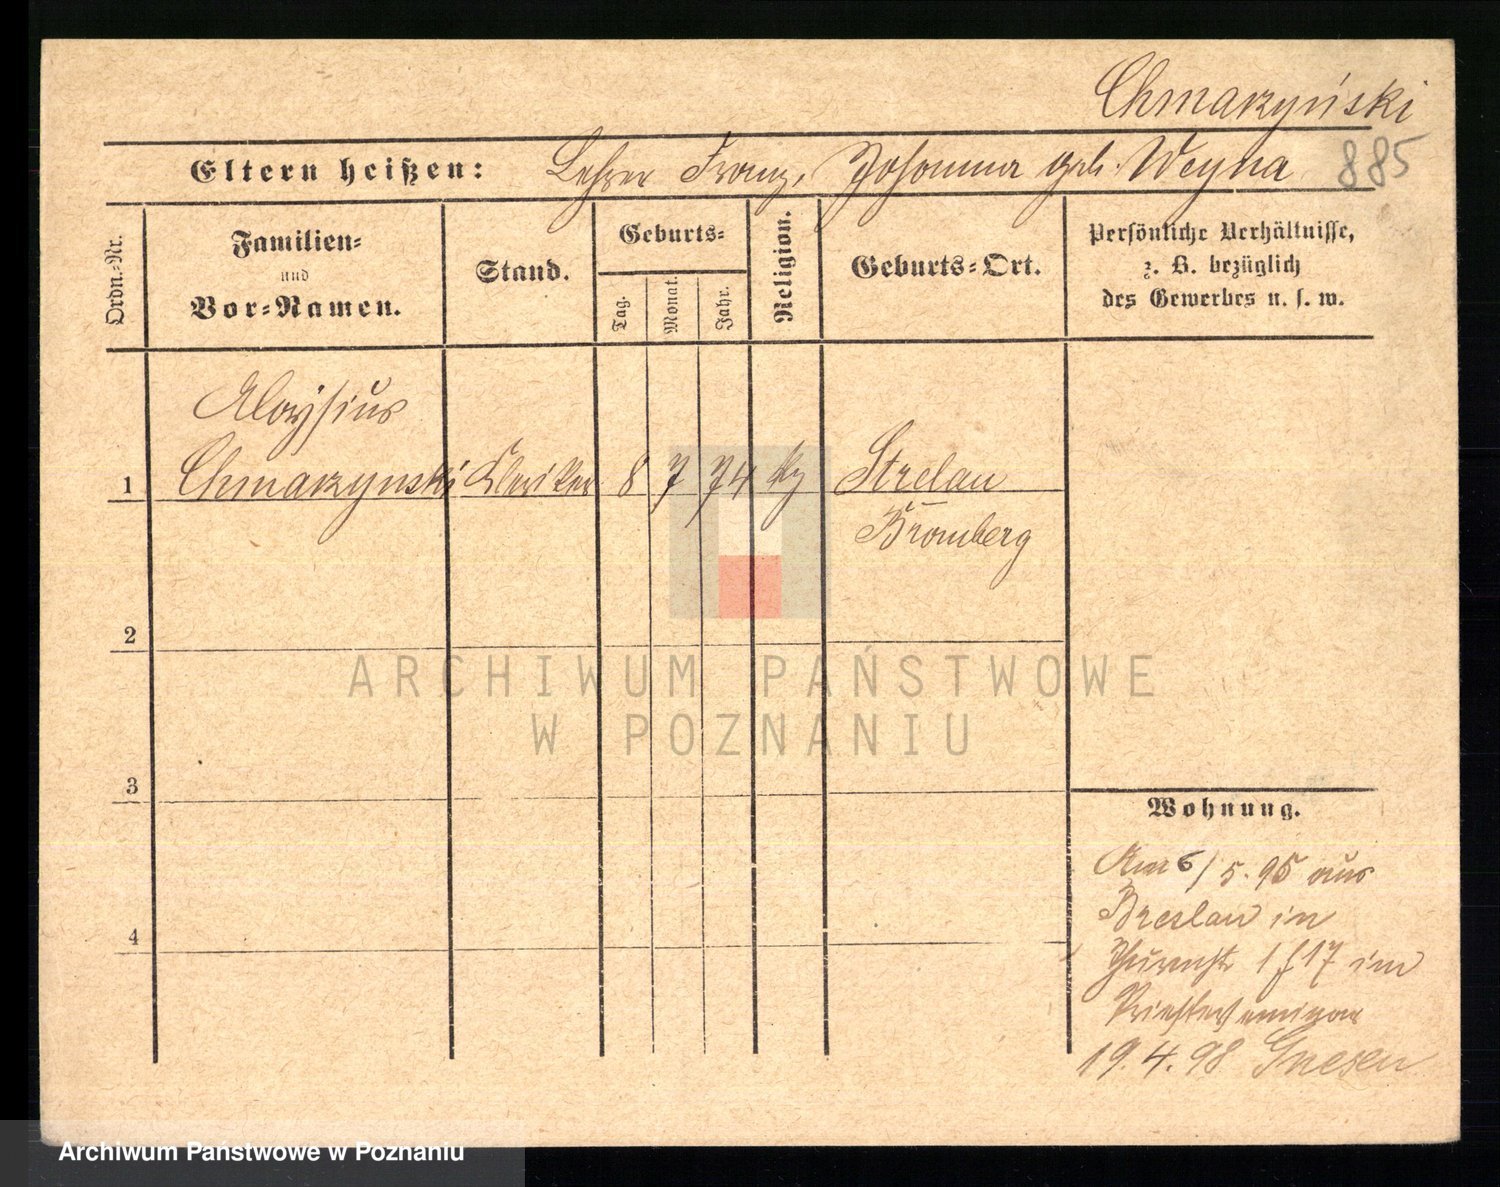 Chmarzyński
885
Eltern heißen: Lehrer Franz, Johanna geb. Weyna
Ordn.-Nr.
Familien-
und
Vor-Namen.
Stand.
Geburts-
Tag.
Monat.
Jahr.
Religion.
Geburts-Ort.
Persönliche Verhältnisse,
z. B. bezüglich
des Gewerbes u. s. w.
Aloysius
1 Chmarzynski Kleriker 8 7 74 Strelau
Bromberg
2
3
4
Wohnung.
Am 6/5.95 aus
Breslau in
17 im
Priesterseminar
19.4.98 Gnesen
ARCHIWUM PAŃSTWOWE
W POZNANIU
Archiwum Państwowe w Poznaniu